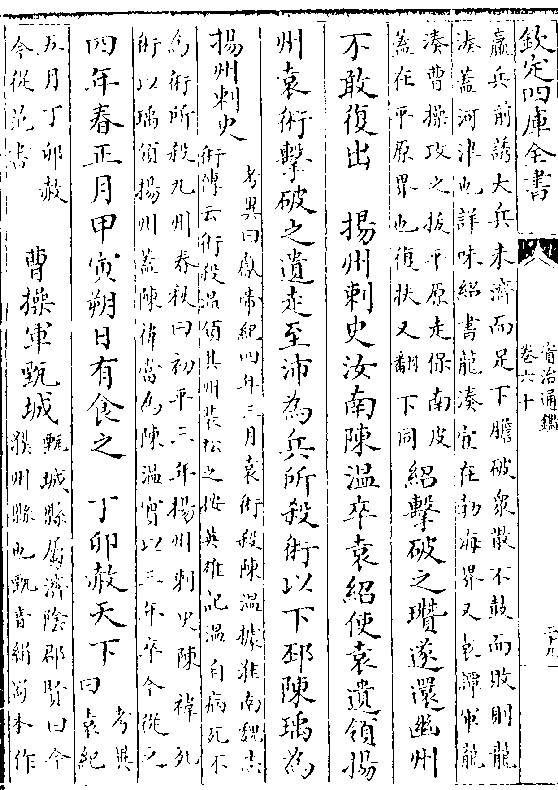 欽定四庫全書
資治通鑑
卷六十
羸兵前誘大兵未濟而足下膽破衆散不鼓而敗則龍
湊蓋河津也詳味紹書龍湊宜在勃海界又袁譚軍龍
湊曹操攻之拔平原走保南皮
蓋在平原界也復扶又翻下同
紹擊破之瓚遂還幽州
不敢復出　揚州刺史汝南陳温卒袁紹使袁遺領揚
州袁術擊破之遺走至沛為兵所殺術以下邳陳瑀為
揚州刺史
考異曰獻帝紀四年三月袁術殺陳温據淮南魏志
術傳云術殺温領其州裴松之按英雄記温自病死不
為術所殺九州春秋曰初平三年揚州刺史陳禕死
術以瑀領揚州蓋陳禕當為陳温實以三年卒今從之
四年春正月甲寅朔日有食之　丁卯赦天下
考異
曰袁紀
五月丁卯赦
今從范書
曹操軍甄城
甄城縣屬濟陰郡賢曰今
濮州縣也甄音絹蜀本作